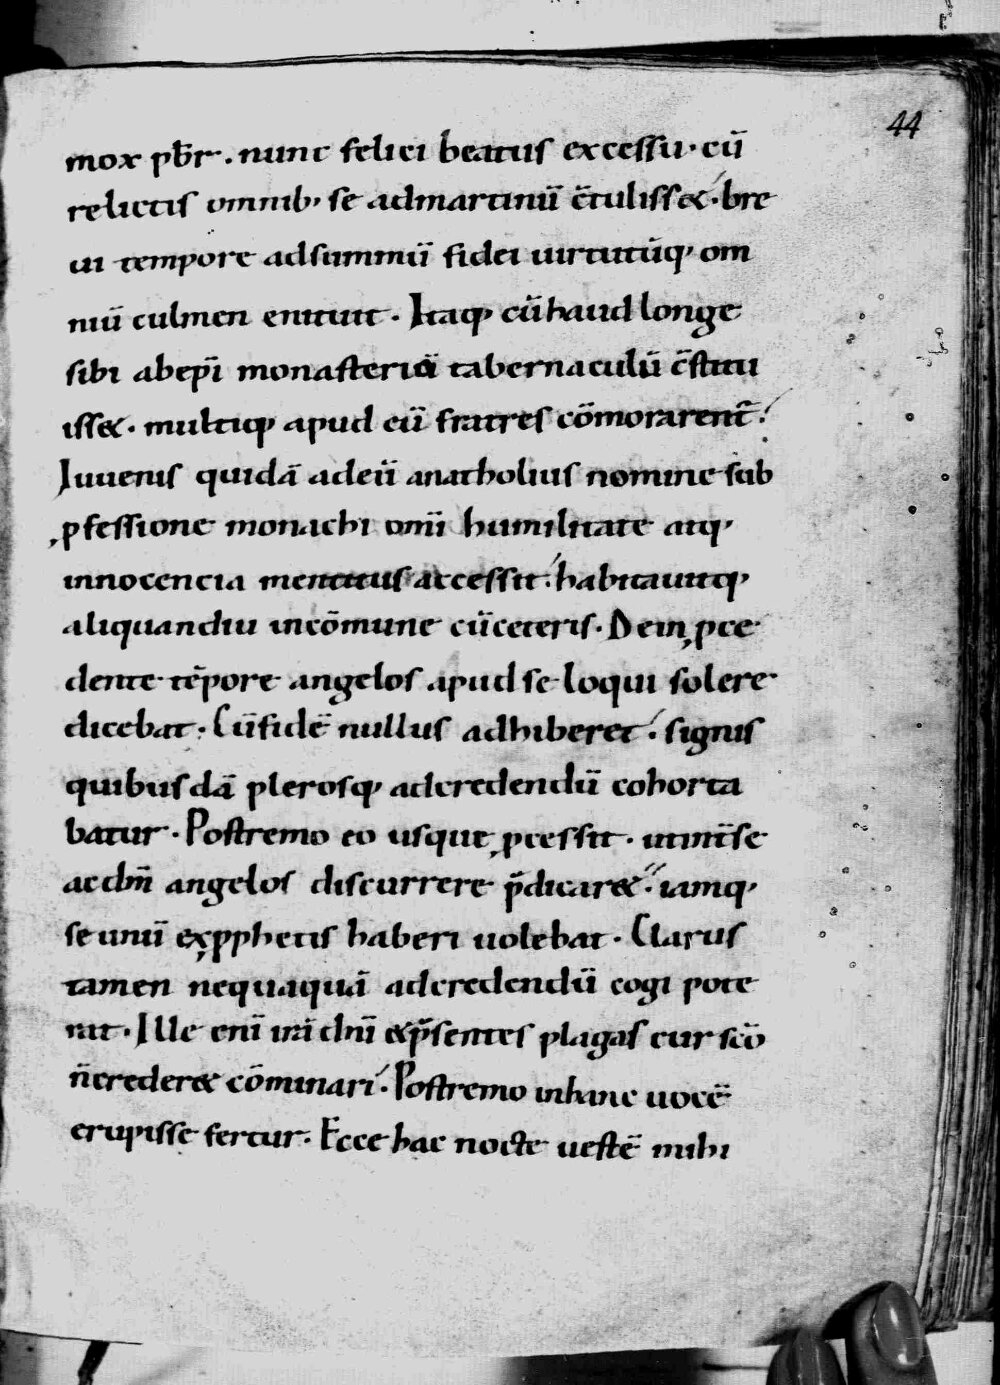 44
mox pb̄r. nunc felici beatus excessu. cū
relictis omnib; se admartinū c̄tuliss&. bre
ui tempore adsummū fidei uirtutūq; om
niū culmen enituit. Itaq; cū haud longe
sibi abep̄i monasteriū tabernaculū c̄stitu
iss&. multiq; apud eū fratres cōmorarent̄.
Iuuenis quidā adeū anatholius nomine sub
ꝓfessione monachi om̄i humilitate atq;
innocencia mentitus accessit. habitauitq;
aliquandiu incōmune cūceteris. Dein ꝓce
dente tēpore angelos apud se loqui solere
dicebat. Cūfidē nullus adhiberet. signis
quibusdā plerosq; adcredendū cohorta
batur. Postremo eo usque ꝓcessit. utint̄se
acdm̄ angelos discurrere p̄dicar&. iamq;
se unū exꝓphetis haberi uolebat. Clarus
tamen nequaquā adcredendū cogi pote
rat. Ille enī irā dn̄i &p̄sentes plagas cur scō
n̄creder& cōminari. Postremo inhanc uocē
erupisse fertur. Ecce hac nocte uestē mihi